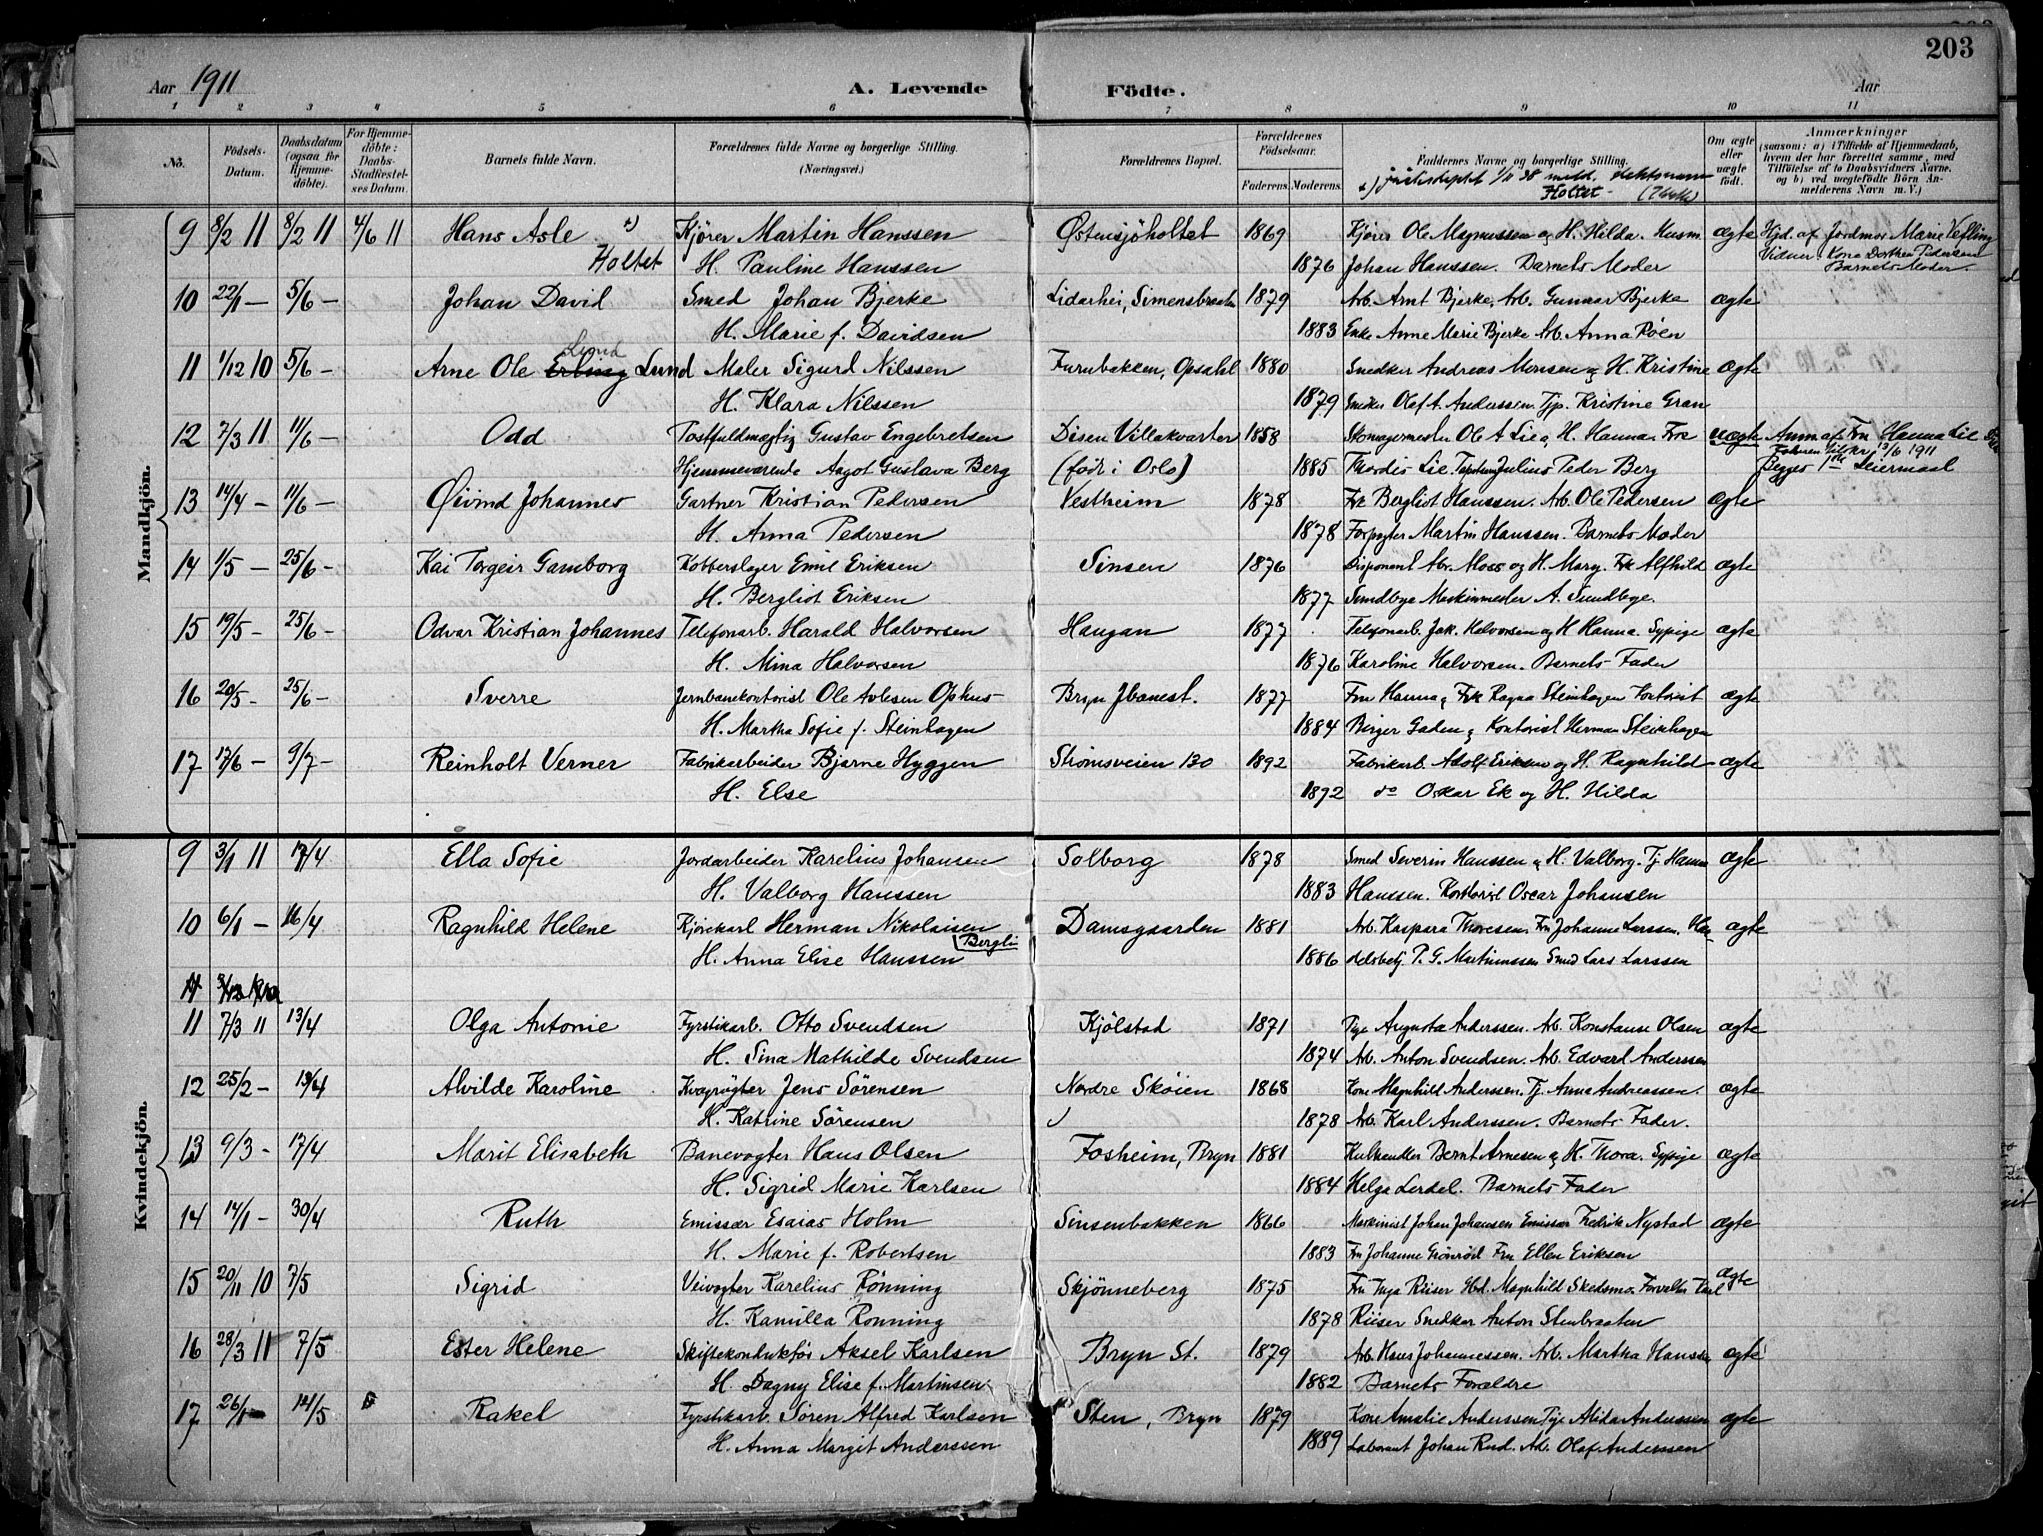 203
Aar 1911 A. Levende Födte. Aar
1 2 3 4 5 6 7 8 9 10 11
No. Födsels-Datum. Daabsdatum (ogsaa for Hjemmedöbte). For Hjemmedöbte: Daabs-Stadfæstelses Datum. Barnets fulde Navn. Forældrenes fulde Navne og borgerlige Stilling. (Næringsvei.) Forældrenes Bopæl. Forældrenes Födselsaar. Faderens. Moderens. Faddernes Navne og borgerlige Stilling. Om ægte eller uægte födt. Anmærkninger (saasom: a) i Tilfælde af Hjemmedaab, hvem der har forrettet samme, med Tilföielse af to Daabsvidners Navne, og b) ved uægtefödte Börn Anmelderens Navn m. V.)
Justisdeptet 38 meld. slektsnavn
Holtet
Mandkjön.
9 8/2 11 8/2 11 4/6 11 Hans Asle Kjører Martin Hanssen Østensjöholtet 1869 Kjører Ole Magnussen og H. Hilda. Husm. ægte Hjd. af Jordmor Marie Vefling
Holtet H. Pauline Hanssen 1876 Johan Hanssen. Barnets Moder Vidner: Kone Dorthea Pedersen
Barnets Moder
10 22/1 — 5/6 — Johan David Smed Johan Bjerke Lidarhei, Simensbraaten 1879 Arb. Arnt Bjerke, Arb. Gunnar Bjerke ægte
H. Marie f. Davidsen 1883 Enke Anne Marie Bjerke Arb. Anna Røen
Lund
11 1/12 10 5/6 — Arne Ole Erling Lund Maler Sigurd Nilssen Furubakken, Opsahl 1880 Snedker Andreas Monsen og H. Kristine ægte
H. Klara Nilssen 1879 Snedker Olaf A. Anderssen. Tjp. Kristine Gran
12 7/3 11 11/6 — Odd Postfuldmægtig Gustav Engebretsen Disen Villakvarter 1858 Skomagermester Ole A Lie og H. Hanna. Frk uægte Anm af Fru Hanna Lie
Hjemmeværende Aagot Gustava Berg (født i Oslo) 1885 Thordis Lie. Julius Peder Berg Begges 1ste Leiermaal
13 14/4 — 11/6 — Øivind Johannes Gartner Kristian Pedersen Vestheim 1878 Frk Bergliot Hanssen. Arb. Ole Pedersen ægte
H. Anna Pedersen 1878 Forpagter Martin Hanssen. Barnets Moder
14 1/5 — 25/6 — Kai Torgeir Gamborg Kobberslager Emil Eriksen Sinsen 1876 Disponent Abr. Moes og H. Mary. Frk Alfhild ægte
H. Bergliot Eriksen 1877 Sundbye Maskinmester A. Sundbye.
15 19/5 — 25/6 — Odvar Kristian Johannes Telefonarb. Harald Halvorsen Haugan 1877 Telefonarb. Jak. Halvorsen og H Hanna. Sypige ægte
H. Mina Halvorsen 1876 Karoline Halvorsen. Barnets Fader
16 20/5 — 25/6 — Sverre Jernbanekontorist Ole Avlesen Ophus Bryn Jbanest. 1877 Fru Hanna og Frk Ragna Steinhagen Kontorist ægte
H. Martha Sofie f. Steinhagen 1884 Birger Gaden og Kontorist Herman Steinhagen
17 17/6 — 9/7 — Reinholt Verner Fabrikarbeider Bjarne Hyggen Strömsveien 130 1892 Fabrikarb. Adolf Eriksen og H. Ragnhild ægte
H. Else 1892 do Oskar Ek og H. Hilda
Kvindekjön.
9 3/1 11 17/4 Ella Sofie Jordarbeider Karelius Johansen Solborg 1878 Smed Severin Hanssen og H. Valborg. Tj. Hanna ægte
H. Valborg Hanssen 1883 Hanssen. Kontorist Oscar Johansen
10 6/1 — 16/4 Ragnhild Helene Kjörekarl Herman Nikolaisen Damsgaarden 1881 Arb. Kaspara Thoresen Fru Johanne Larssen. Han ægte
H. Anna Elise Hanssen Bergli 1886 delsbetj. P. G. Martinussen Smed Lars Larssen
11 7/3 11 13/4 Olga Antonie Fyrstikarb. Otto Svendsen Kjölstad 1871 Pige Augusta Anderssen. Arb. Konstanse Olsen ægte
H. Sina Mathilde Svendsen 1874 Arb. Anton Svendsen. Arb. Edvard Anderssen
12 25/2 — 13/4 Alvilde Karoline Kvægrögter Jens Sörensen Nordre Skøien 1868 Kone Magnhild Anderssen. Tj. Anna Andreassen. ægte
H. Katrine Sörensen 1878 Arb. Karl Anderssen. Barnets Fader.
13 9/3 — 17/4 Marit Elisabeth Banevogter Hans Olsen Fosheim, Bryn 1881 Kulhandler Bernt Arnesen og H. Thora. Sypige ægte
H. Sigrid Marie Karlsen 1884 Helga Lerdel. Barnets Fader
14 14/1 — 30/4 Ruth Emissær Esaias Holm Sinsenbakken 1866 Maskinist Johan Johansen Emissær Fredrik Nystad ægte
H. Marie f. Robertsen 1883 Fru Johanne Grönröd Fru Ellen Eriksen
15 20/11 10 7/5 Sigrid Veivogter Karelius Rönning Skjönneberg 1875 Fru Inga Riiser Hd. Magnhild Skedsmo. Forvalter Karl ægte
H. Kamilla Rönning 1878 Riiser Snedker Anton Stenbraaten
16 28/3 11 7/5 Ester Helene Skiftekonduktör Aksel Karlsen Bryn St. 1879 Arb. Hans Johannessen. Arb. Martha Hanssen ægte
H. Dagny Elise f. Martinsen 1882 Barnets Forældre
17 26/1 — 14/5 Rakel Fyrstikarb. Sören Alfred Karlsen Sten, Bryn 1879 Kone Amalie Anderssen Pige Alida Anderssen ægte
H. Anna Margit Anderssen 1889 Laborant Johan Rud. Arb. Olaf Anderssen